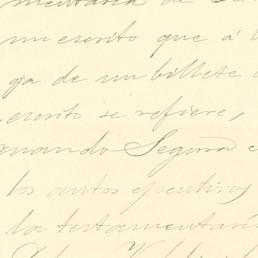 mentaria de
un escrito que á
ga de un billete
escrito se refiere,
nando Segura
los autos ejecutivos
la testamentaría